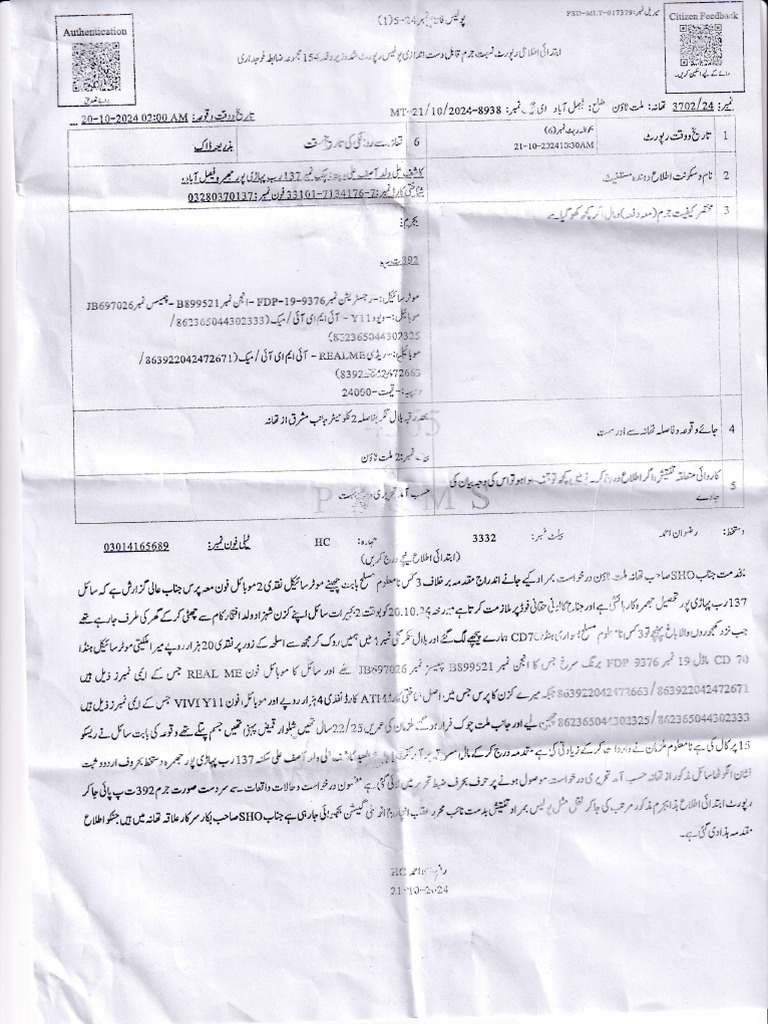 Authentication
برائے تصدیق
سیریل نمبر: FSD-MLT-017379
Citizen Feedback
رائے کے لیے اسکین کریں۔
پولیس فارم نمبر 24-5(1)
ابتدائی اطلاعی رپورٹ نسبت جرم قابل دست اندازی پولیس رپورٹ شدہ زیر دفعہ 154 مجموعہ ضابطہ فوجداری
نمبر: 3702/24 تھانہ: ملت ٹاؤن ضلع: فیصل آباد ای نمبر: MT-21/10/2024-8938 تاریخ و وقت وقوعہ: 20-10-2024 02:00 AM
1 تاریخ و وقت رپورٹ
بحوالہ رپٹ نمبر (6)
21-10-2024
6 تھانہ سے روانگی کی تاریخ و وقت
بذریعہ ڈاک
2 نام و سکونت اطلاع دہندہ مستغیث
کاشف علی ولد آصف علی چک نمبر 137 رب پہاڑی پور جھمرہ فیصل آباد،
شناختی کارڈ نمبر: 33101-7134176-7 فون نمبر: 03280370137
3 مختصر کیفیت جرم (معہ دفعہ) و مال اگر کچھ کھو گیا ہے
بجرم:
392 ت پ
موٹر سائیکل:- رجسٹریشن نمبر FDP-19-9376 - انجن نمبر B899521 - چیسس نمبر JB697026
موبائل:- ویوو Y11 - آئی ایم ای آئی / میک (862365044302333 /
862365044302325)
موبائل:- REALME - آئی ایم ای آئی / میک (863922042472671 /
قیمت-24000
4 جائے وقوعہ و فاصلہ تھانہ سے اور سمت
رقبہ بلال نگر بفاصلہ 2 کلومیٹر جانب مشرق از تھانہ
بیٹ نمبر: 2 ملت ٹاؤن
5 کاروائی متعلقہ تفتیش، اگر اطلاع درج کرنے میں کچھ توقف ہوا ہو تو اس کی وجہ بیان کی
جاوے
حسب آمد تحریری درخواست
PSRMS
دستخط: رضوان احمد بیلٹ نمبر: 3332 عہدہ: HC ٹیلی فون نمبر: 03014165689
(ابتدائی اطلاع نیچے درج کریں)
بخدمت جناب SHO صاحب تھانہ ملت ٹاؤن درخواست بمراد کیے جانے اندراج مقدمہ برخلاف 3 کس نامعلوم مسلح بابت چھیننے موٹر سائیکل نقدی 2 موبائل فون معہ پرس جناب عالی گزارش ہے کہ سائل
137 رب پہاڑی پور تحصیل جھمرہ کا رہائشی ہے اور جناح کالونی حقانی فوڈ پر ملازمت کرتا ہے مورخہ 20.10.24 کو بوقت 2 بجے رات سائل اپنے کزن شہزاد ولد افتخار کام سے چھٹی کر کے گھر کی طرف جا رہے تھے
جب نزد کھجوروں والا باغ پہنچے تو 3 کس نامعلوم مسلح سواری ہنڈا CD70 ہمارے پیچھے لگ گئے اور بلال نگر گلی نمبر 1 میں ہمیں روک کر مجھ سے اسلحہ کے زور پر نقدی 20 ہزار روپے میرا ملکیتی موٹر سائیکل ہنڈا
CD 70 ماڈل 19 نمبر FDP 9376 برنگ سرخ جس کا انجن نمبر B899521 چیسز نمبر JB697026 ہے اور سائل کا موبائل فون REAL ME جس کے ایمی نمبرز ذیل ہیں
863922042472663/863922042472671 جبکہ میرے کزن کا پرس جس میں اصل شناختی کارڈ ATM کارڈ نقدی 4 ہزار روپے اور موبائل فون VIVI Y11 جس کے ایمی نمبرز ذیل ہیں
862365044302325/862365044302333 چھین لیے اور جانب ملت چوک فرار ہو گئے ملزمان کی عمریں 22/25 سال تھیں شلوار قمیض پہنی تھیں جسم پتلے تھے وقوعہ کی بابت سائل نے ریسکیو
15 پر کال کی ہے نامعلوم ملزمان نے واردات کر کے زیادتی کی ہے مقدمہ درج کر کے مال برآمد علی ولد آصف علی سکنہ 137 رب پہاڑی پور جھمرہ دستخط بحروف اردو و ثبت
نشان انگوٹھا سائل مذکور از تھانہ حسب آمد تحریری درخواست موصول ہونے پر حرف بحرف ضبط تحریر میں لائی گئی ہے مضمون درخواست و حالات واقعات سے سردست صورت جرم 392 ت پ پائی جا کر
رپورٹ ابتدائی اطلاع ہذا بجرم مذکور مرتب کی جا کر نقل مثل پولیس بمراد تفتیش بدست نائب محرر عقب انچارج انوسٹی گیشن بھجوائی جا رہی ہے جناب SHO صاحب بکار سرکار علاقہ تھانہ میں ہیں جنکو اطلاع
مقدمہ ہذا دی گئی ہے۔
رضوان احمد HC
21-10-2024